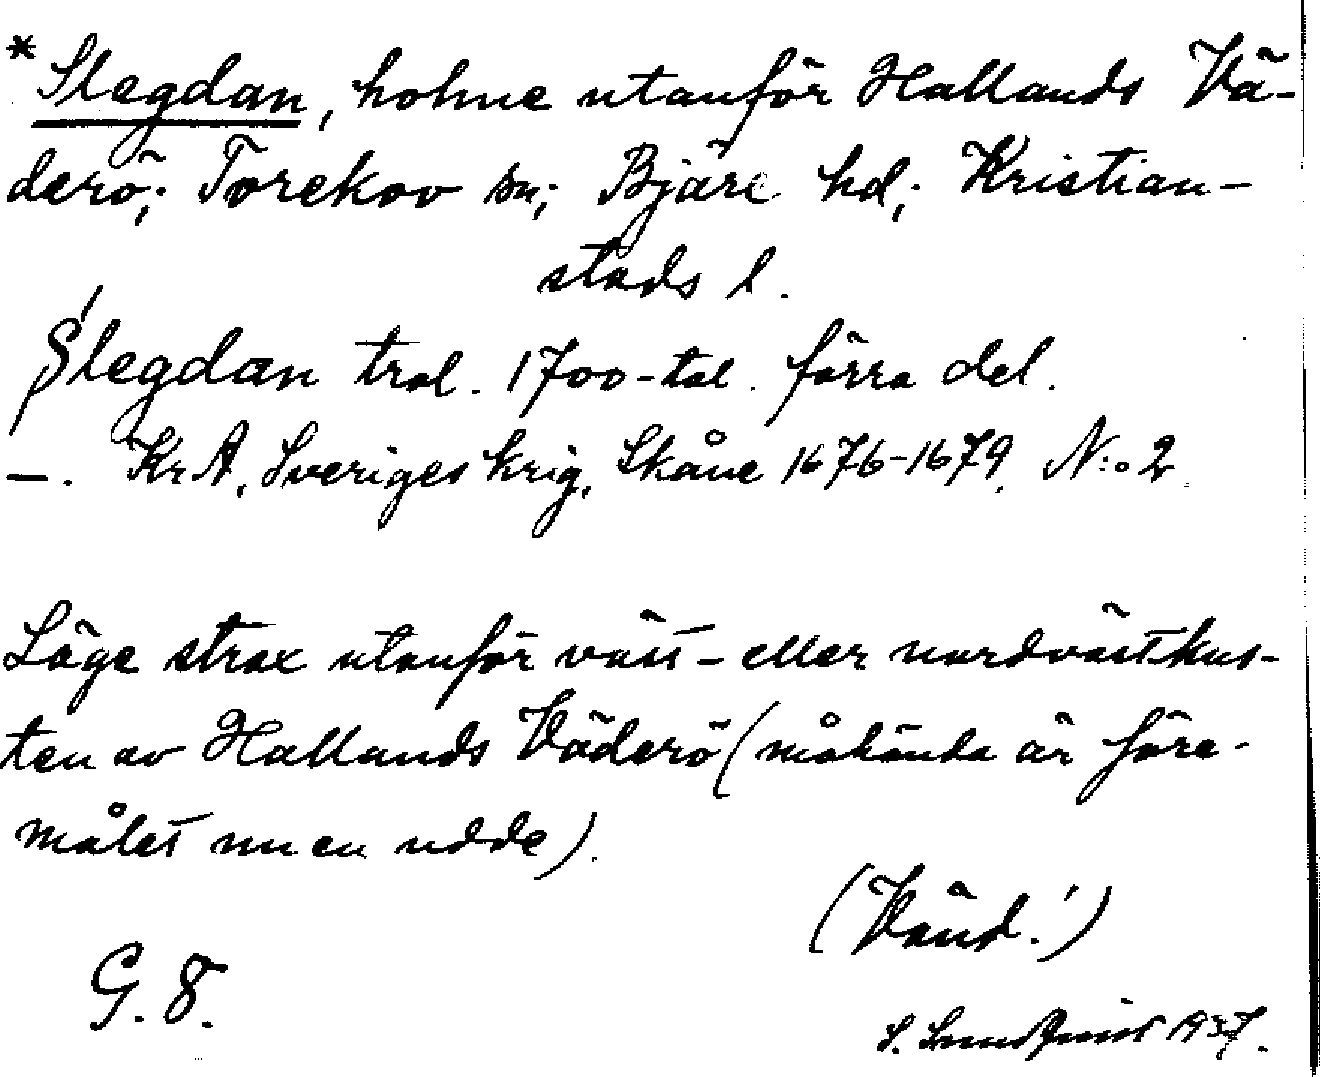 *Slegdan, holme utanför Hallands Vä-
derö; Torekov sn; Bjäre hd; Kristian-
stads l.
Slegdan trol. 1700-tal. förra del.
—. KrA, Sveriges krig, Skåne 1676-1679. N:o 2
Läge strax utanför väst- eller nordvästkus-
ten av Hallands Väderö (måhända är före-
målet nu en udde).
(Vänd!)
G. 8.
S. 1937.